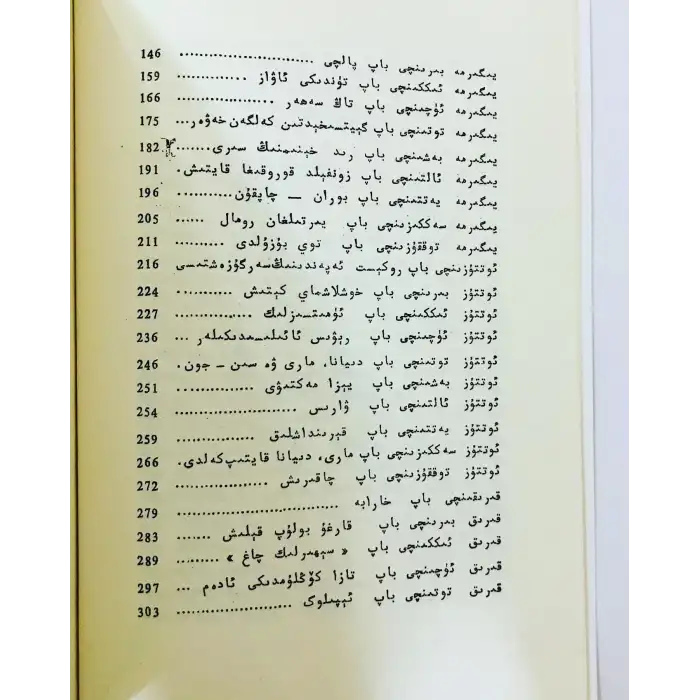 يىگىرمە بىرىنچى باپ پالچى .......................... 146
يىگىرمە ئىككىنچى باپ تۈندىكى ئاۋاز ............ 159
يىگىرمە ئۈچىنچى باپ تاڭ سەھەر .................. 166
يىگىرمە تۆتىنچى باپ گېيتسخېدتىن كەلگەن خەۋەر... 175
يىگىرمە بەشىنچى باپ رىد خېنىمنىڭ سىرى....... 182
يىگىرمە ئالتىنچى باپ زونفېلد قوروقىغا قايتىش. 191
يىگىرمە يەتتىنچى باپ بوران — چاپقۇن.......... 196
يىگىرمە سەككىزىنچى باپ يىرتىلغان رومال ...... 205
يىگىرمە توققۇزىنچى باپ توي بۇزۇلدى .......... 211
ئوتتۇزىنچى باپ روكېست ئەپەندىنىڭ سەرگۈزەشتىسى 216
ئوتتۇز بىرىنچى باپ خوشلاشماي كېتىش .......... 224
ئوتتۇز ئىككىنچى باپ ئۈمىتسىزلىك .............. 227
ئوتتۇز ئۈچىنچى باپ رېۋىس ئائىلىسىدىكىلەر ... 236
ئوتتۇز تۆتىنچى باپ دىيانا، مارى ۋە سىن — جون. 246
ئوتتۇز بەشىنچى باپ يېزا مەكتىۋى .............. 251
ئوتتۇز ئالتىنچى باپ ۋارىس ...................... 254
ئوتتۇز يەتتىنچى باپ قېرىنداشلىق .............. 259
ئوتتۇز سەككىزىنچى باپ مارى، دىيانا قايتىپ كەلدى. 266
ئوتتۇز توققۇزىنچى باپ چاقىرىش .................. 272
قىرىقىنچى باپ خارابە .............................. 279
قىرىق بىرىنچى باپ قارغۇ بولۇپ قېلىش ....... 283
قىرىق ئىككىنچى باپ « سېھىرلىك چاغ » ......... 289
قىرىق ئۈچىنچى باپ تازا كۆڭلۈمدىكى ئادەم ... 297
قىرىق تۆتىنچى باپ ئېپىلوگ ...................... 303